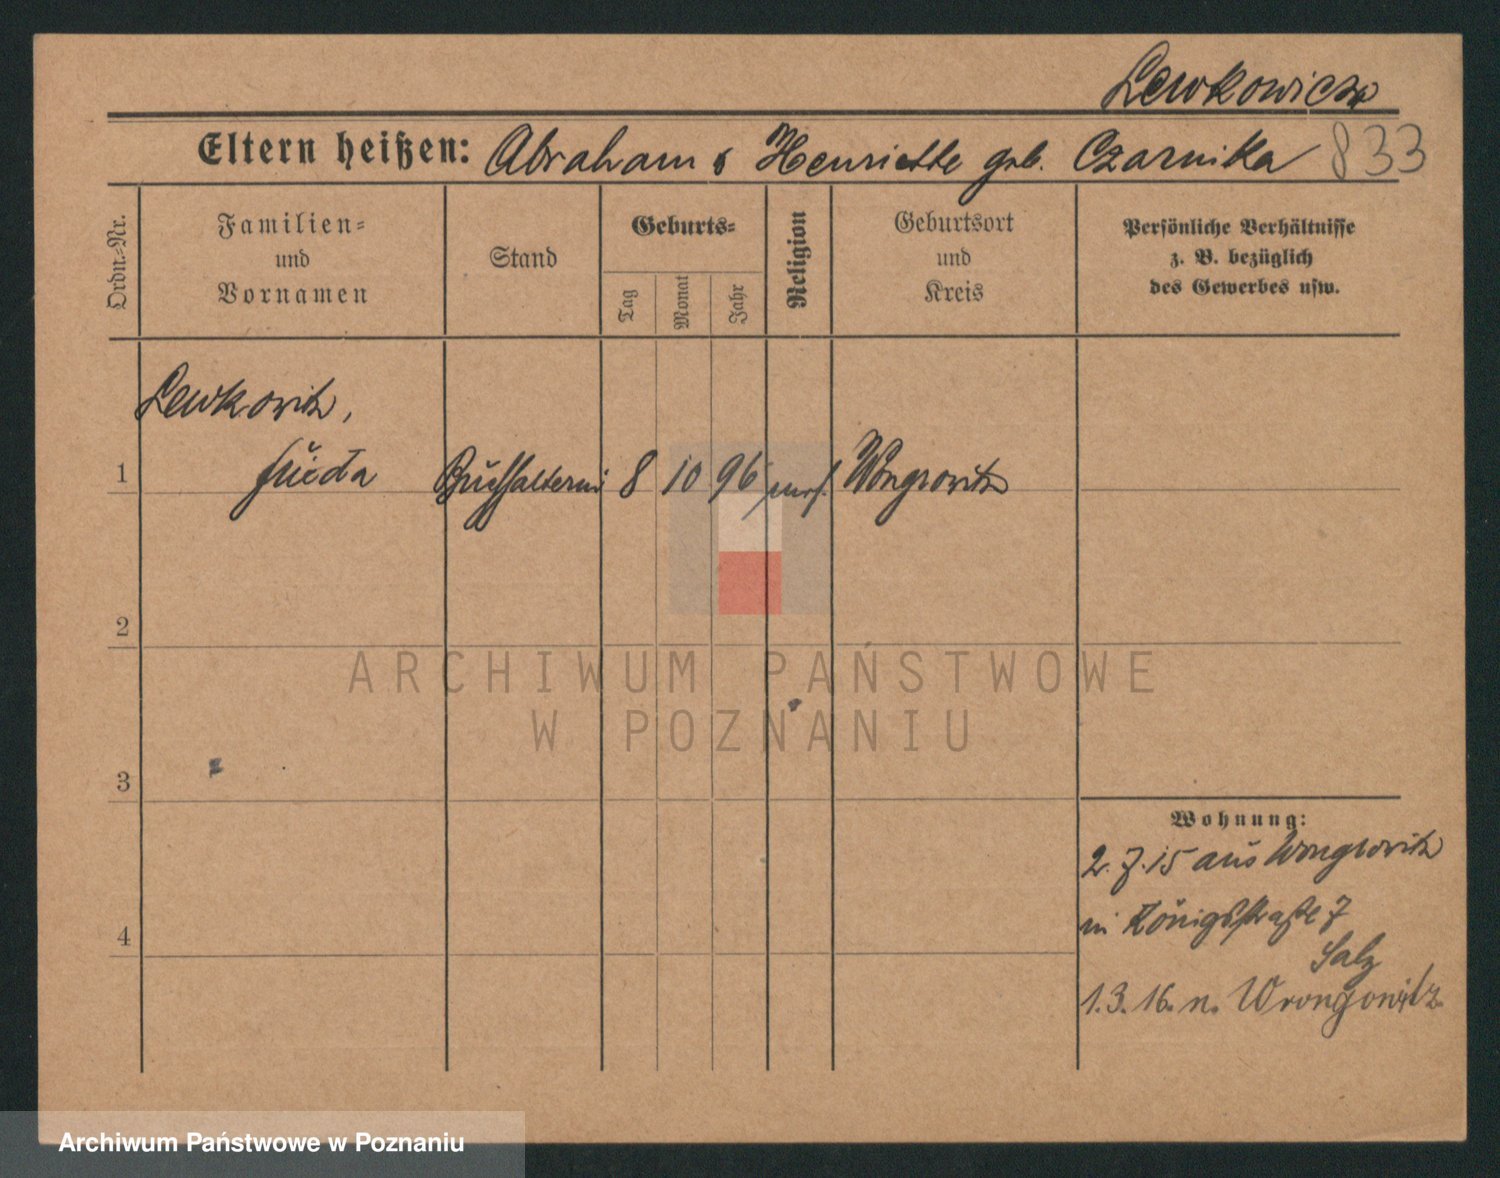 Lewkowicz
Eltern heißen: Abraham & Henriette geb. Czarnika 833
Ordn.-Nr.
Familien-
und
Vornamen
Stand
Geburts-
Tag
Monat
Jahr
Religion
Geburtsort
und
Kreis
Persönliche Verhältnisse
z. B. bezüglich
des Gewerbes usw.
Lewkowitz,
1 Frieda Buchhalterin 8 10 96 mos. Wongrowitz
2
ARCHIWUM PAŃSTWOWE
W POZNANIU
3
Wohnung:
2.7.15 aus Wongrowitz
in Königstraße 7
4
Salz
1.3.16. n. Wrongowitz
Archiwum Państwowe w Poznaniu